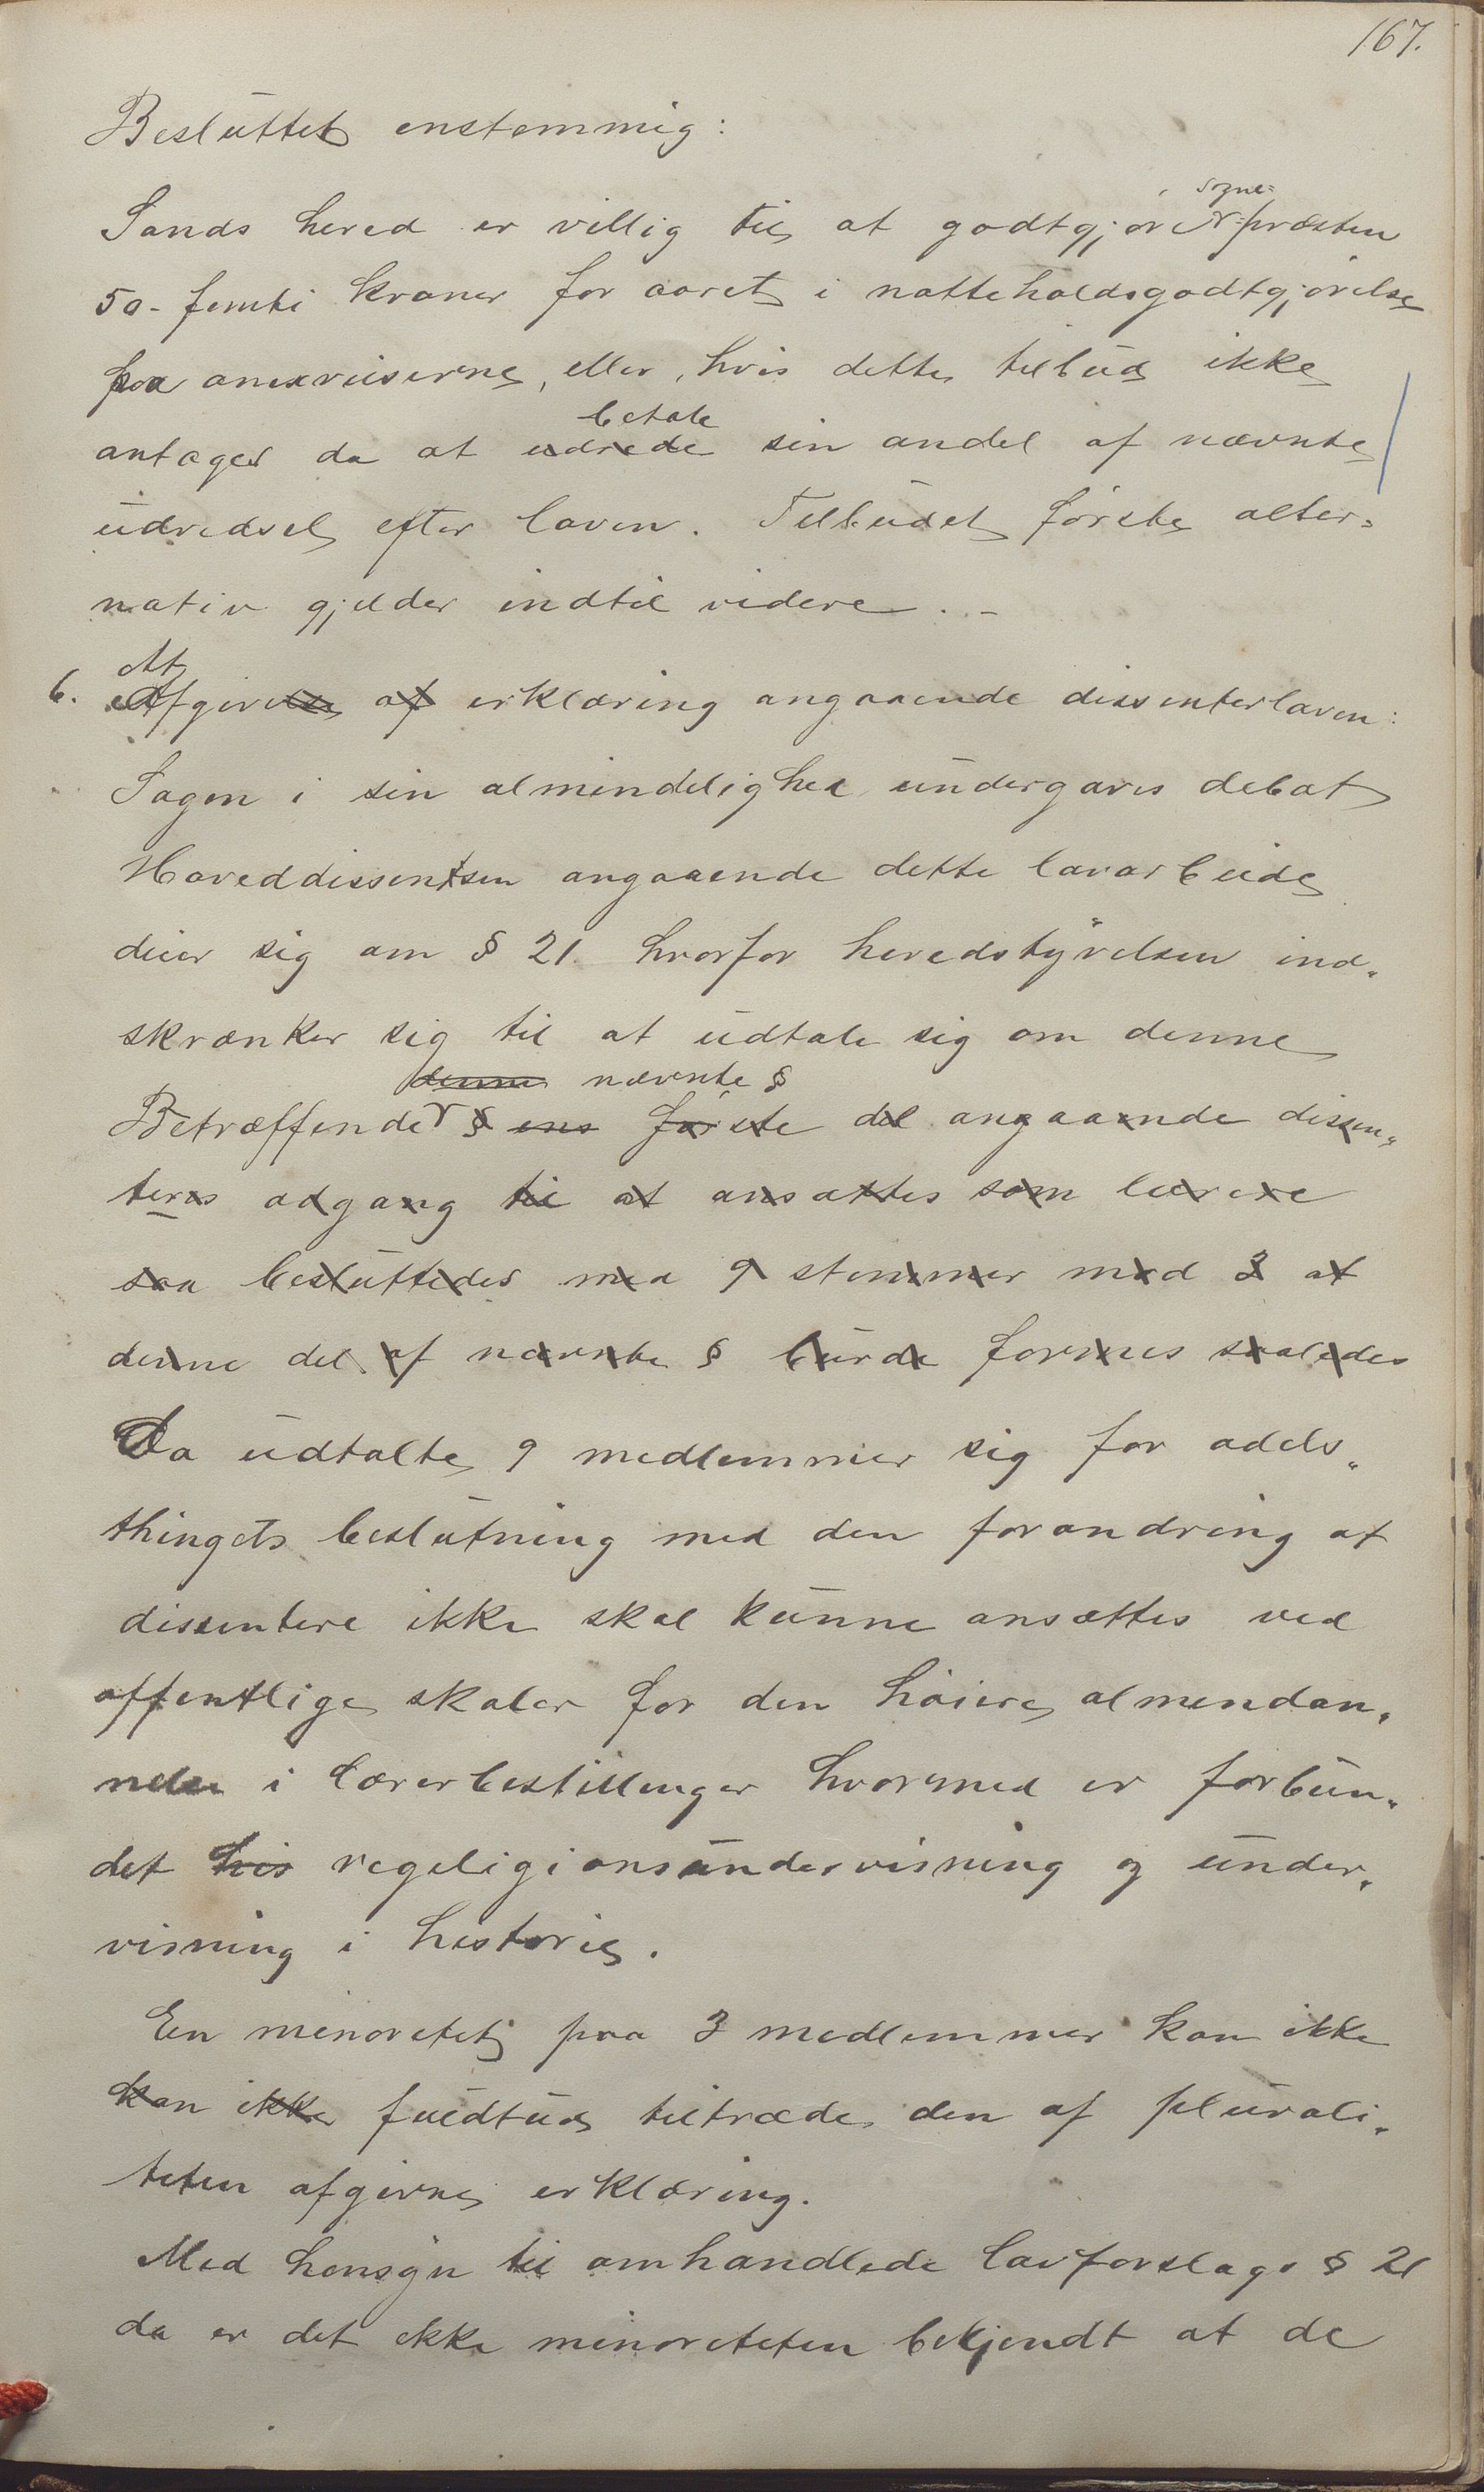 167.
Besluttet enstemmig:
Sands hered er villig til at godtgjøre sogne=præsten
50 - femti kroner for aaret i natteholdsgodtgjørelse
paa anexreiserne, eller, hvis dette tilbud ikke
antages da at udrede betale sin andel af nævnte
udredsel efter loven. Tilbudet første alter=
nativ gjelder indtil videre. -
6. At Afgivelse af erklæring angaaende dissenterloven:
Sagen i sin almindelighed undergaves debat
Hoveddissentsen angaaende dette lovarbeide
dreier sig om § 21. hvorfor heredstyrelsen ind=
skrænker sig til at udtale sig om denne
denne nævnte §
Betræffende § ens første del angaaende dissen=
teres adgang til at ansættes som lærere
saa besluttedes med 9 stemmer mod 3 at
denne del af nævnte § burde formes saaledes
Da udtalte 9 medlemmer sig for odels=
thingets beslutning med den forandring at
dissentere ikke skal kunne ansættes ved
offentlige skoler for den høiere almendan=
nelse i lærerbestillinger hvormed er forbun=
det hvis regeligionsundervisning og under=
visning i historie.
En minoretet paa 3 medlemmer kan ikke
kan ikke fuldtud tiltræde den af plurali=
teten afgivne erklæring.
Med hensyn til omhandlede lovforslags § 21
da er det ikke minoreteten bekjendt at de